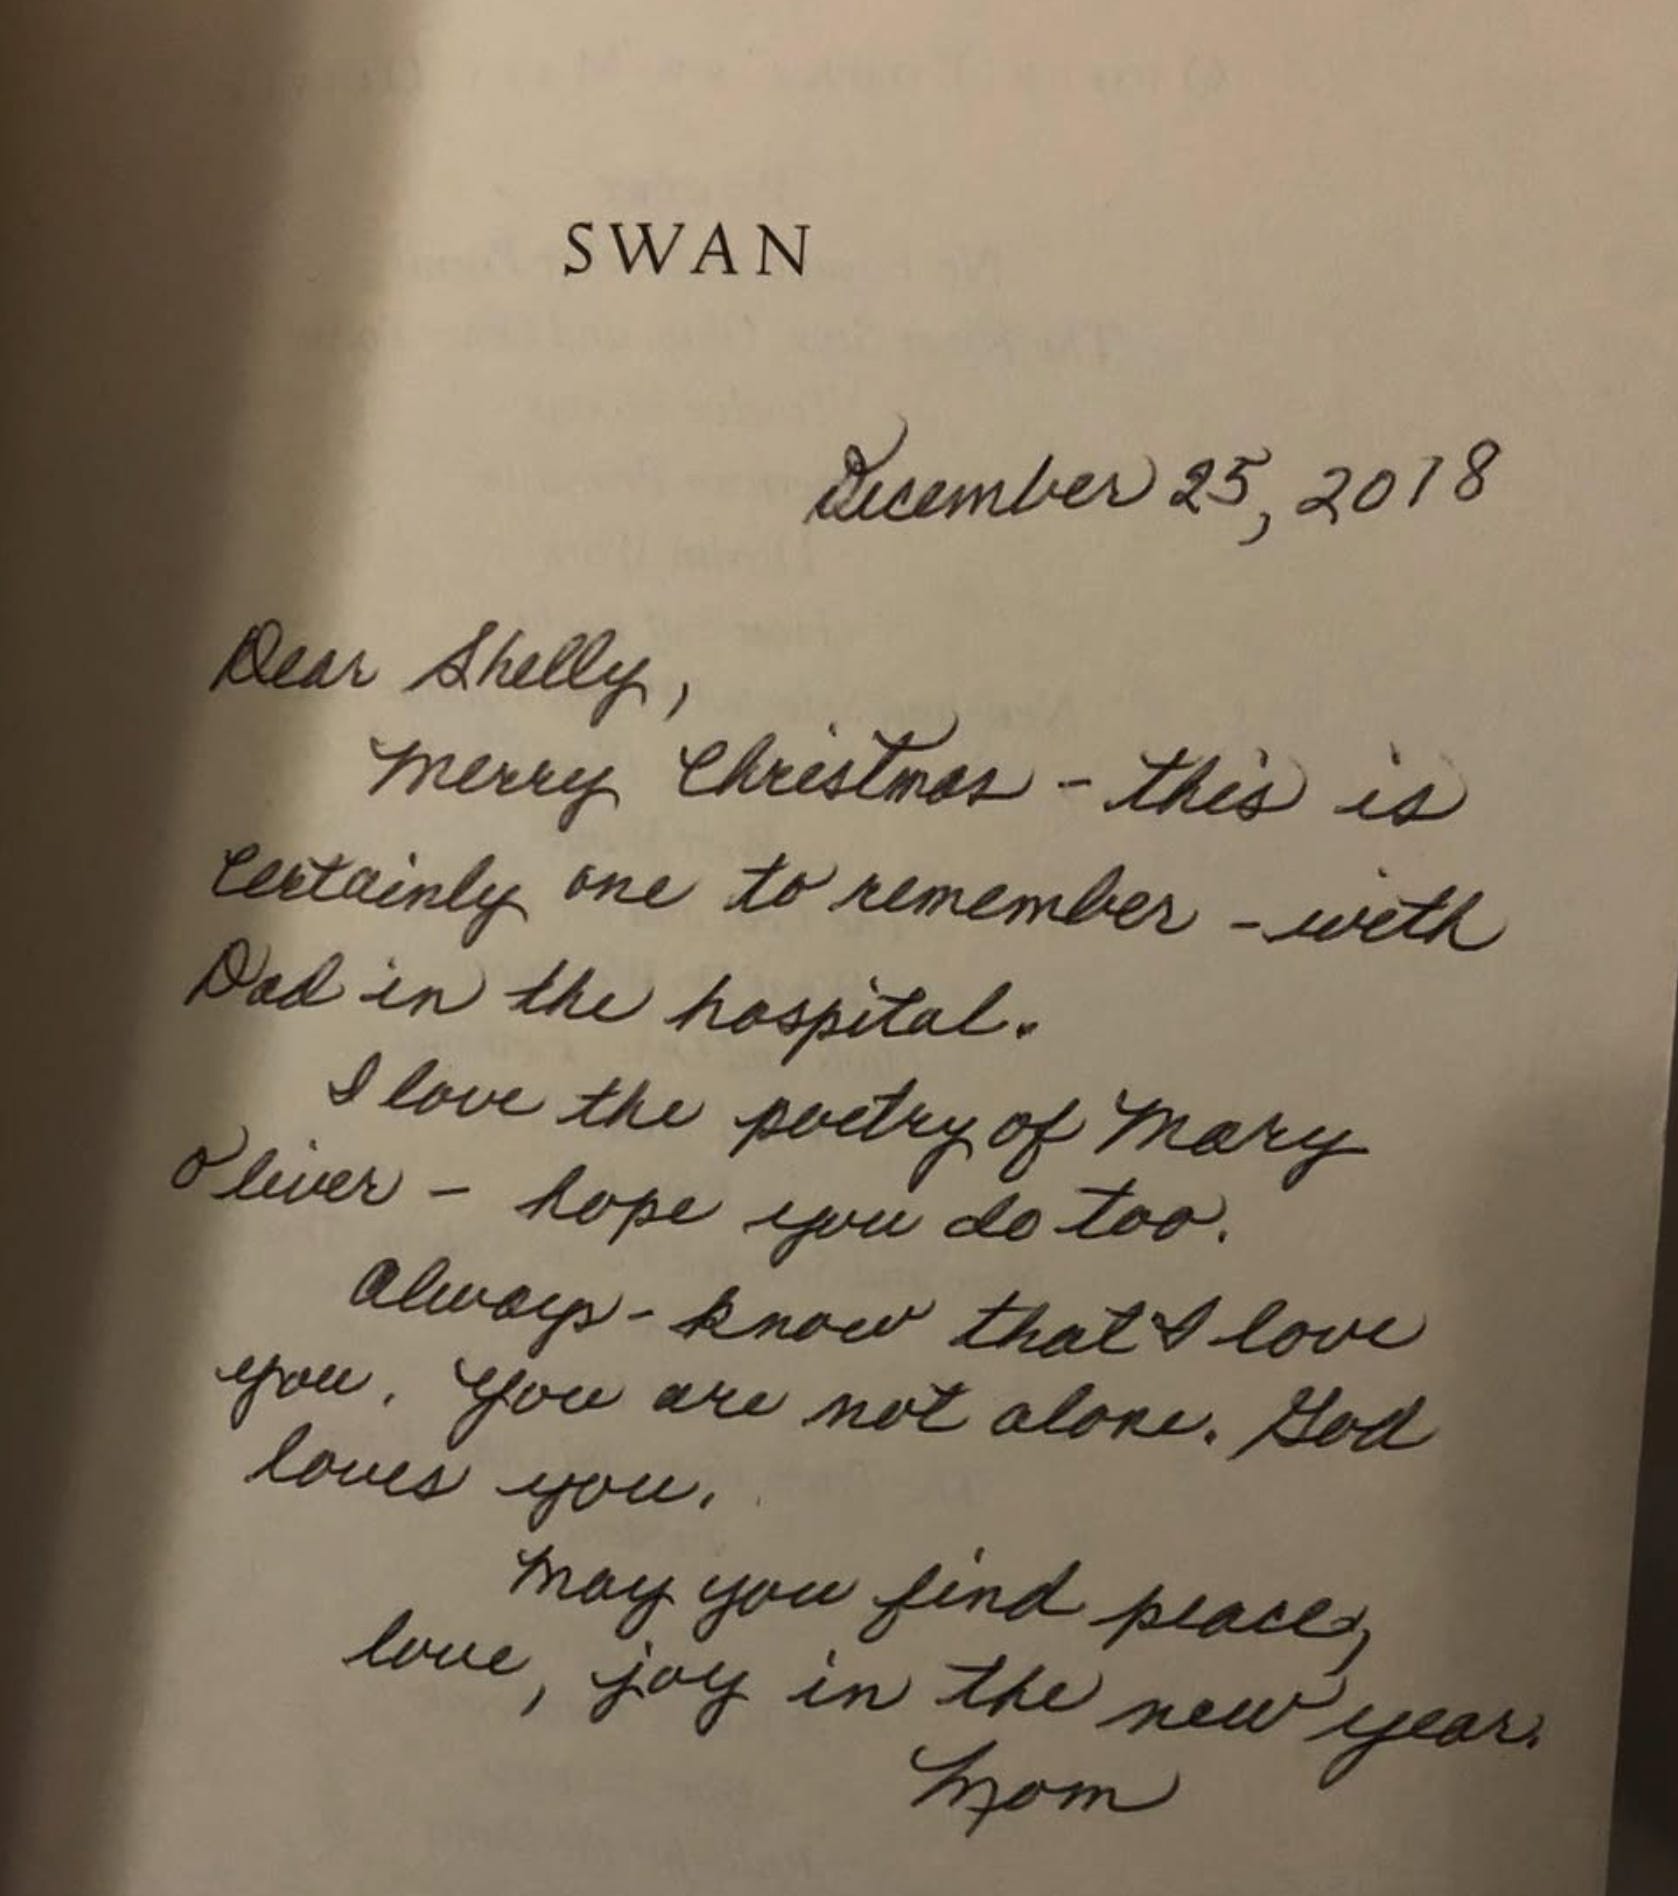 SWAN
December 25, 2018
Dear Shelly,
Merry Christmas - this is
certainly one to remember - with
Dad in the hospital.
I love the poetry of Mary
Oliver - hope you do too.
Always - know that I love
you. You are not alone. God
loves you.
May you find peace,
love, joy in the new year.
Mom